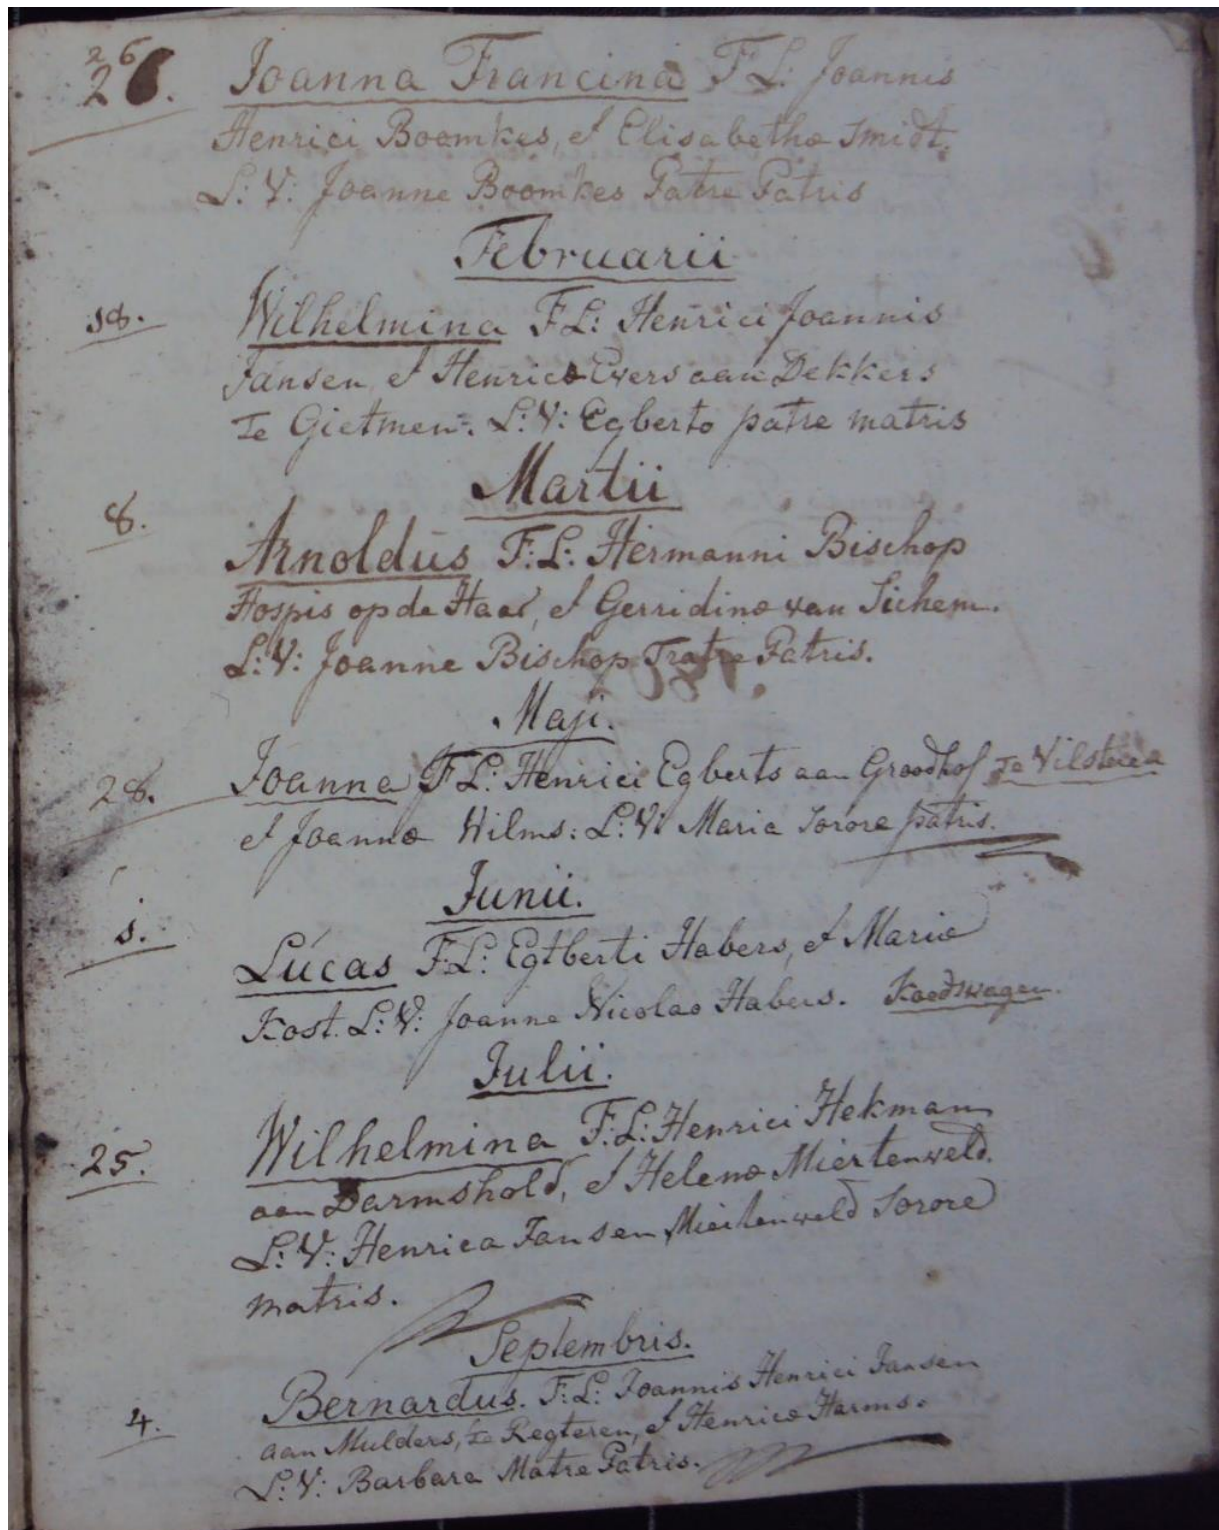 26
26. Joanna Francina F: L: Joannis
Henrici Boomkes, et Elisabethæ Smidt.
L: V: Joanne Boomkes Patre Patris
Februarii
18. Wilhelmina F: L: Henrici Joannis
Jansen, et Henricæ Evers aan Dekkers
te Gietmen. L: V: Egberto patre matris
Martii
8. Arnoldus F: L: Hermanni Bischop
Hospis op de Haar, et Gerridinæ van Sichem.
L: V: Joanne Bischop Fratre Patris.
Maji.
28. Joanna F L: Henrici Egberts aan Groodhof Te Vilsteren
et Joannæ Wilms: L: V: Maria Sorore patris.
Junii.
1. Lucas F: L: Egtberti Habers, et Mariæ
Kost. L: V: Joanne Nicolao Habers. Koedswagen.
Julii.
25. Wilhelmina F: L: Henrici Hekman
aan Darmshold, et Helenæ Miertenveld.
L: V: Henrica Jansen Miertenveld Sorore
matris.
Septembris.
4. Bernardus. F: L: Joannis Henrici Jansen
aan Mulders, te Regteren, et Henricæ Harms.
L: V: Barbara Matre Patris.